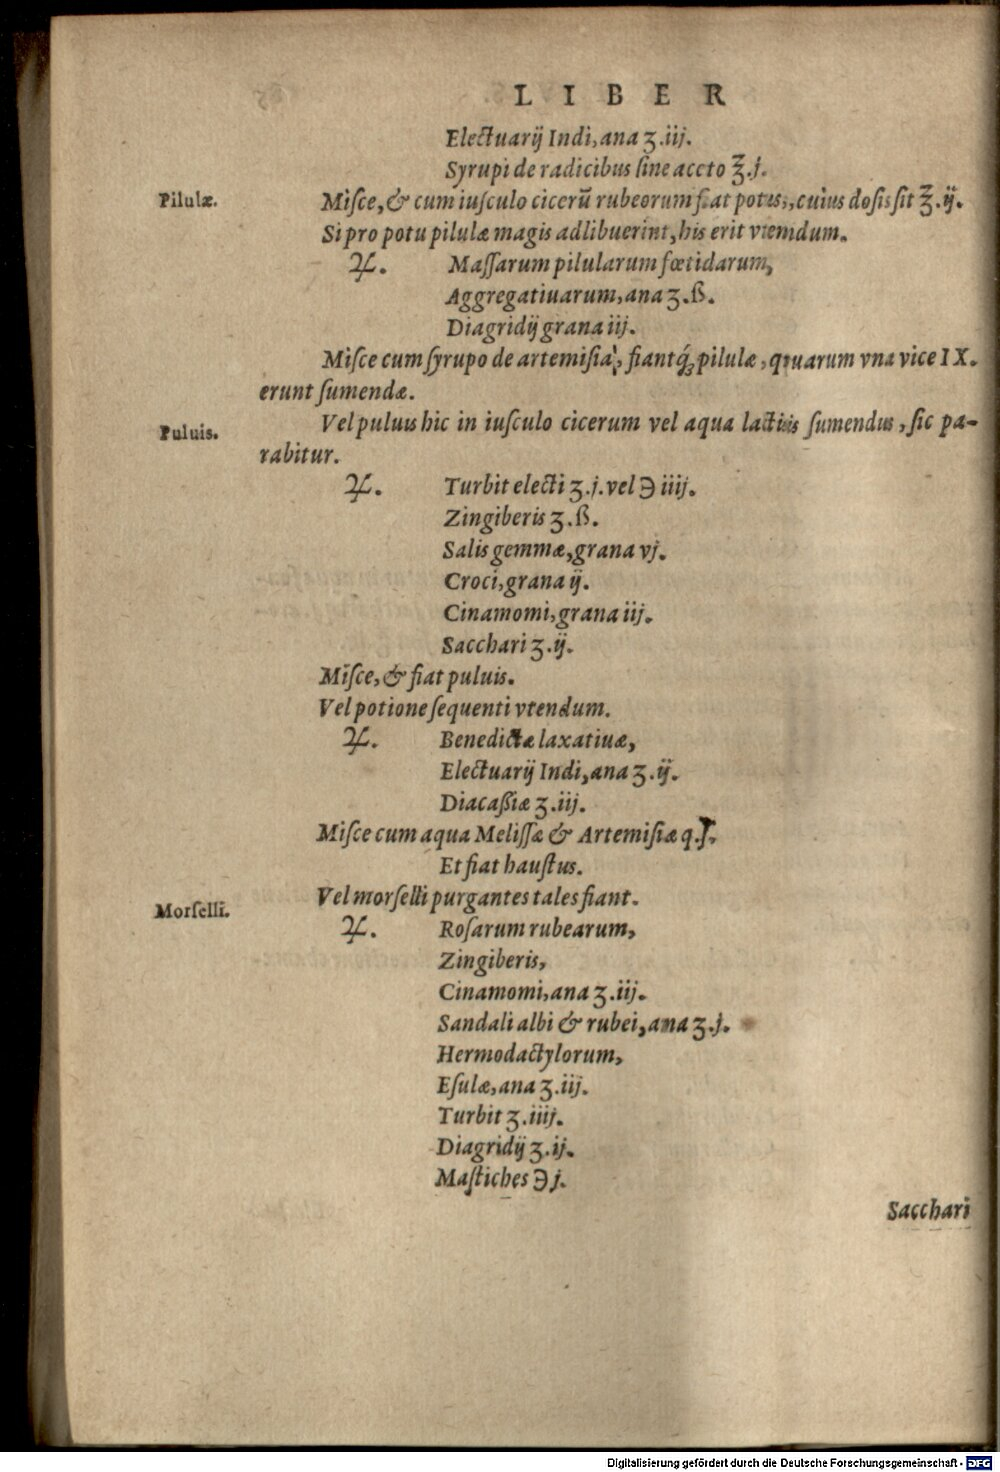 LIBER
Electuarij Indi, ana ʒ.iij.
Syrupi de radicibus sine aceto ℥.j.
Pilulæ.
Misce, & cum iusculo cicerū rubeorum fiat potus, cuius dosis sit ℥.ij.
Si pro potu pilulæ magis adlibuerint, his erit vtendum.
♃.
Massarum pilularum fœtidarum,
Aggregatiuarum, ana ʒ.ß.
Diagridij grana iij.
Misce cum syrupo de artemisia, fiantq́; pilulæ, quarum vna vice IX.
erunt sumendæ.
Puluis.
Vel puluis hic in iusculo cicerum vel aqua lactis sumendus, sic pa-
rabitur.
♃.
Turbit electi ʒ.j. vel ℈ iiij.
Zingiberis ʒ.ß.
Salis gemmæ, grana vj.
Croci, grana ij.
Cinamomi, grana iij.
Sacchari ʒ.ij.
Misce, & fiat puluis.
Vel potione sequenti vtendum.
♃.
Benedictæ laxatiuæ,
Electuarij Indi, ana ʒ.ij.
Diacaßiæ ʒ.iij.
Misce cum aqua Melissæ & Artemisiæ q.s.
Et fiat haustus.
Morselli.
Vel morselli purgantes tales fiant.
♃.
Rosarum rubearum,
Zingiberis,
Cinamomi, ana ʒ.iij.
Sandali albi & rubei, ana ʒ.j.
Hermodactylorum,
Esulæ, ana ʒ.iij.
Turbit ʒ.iiij.
Diagridij ʒ.ij.
Mastiches ℈ j.
Sacchari
Digitalisierung gefördert durch die Deutsche Forschungsgemeinschaft - DFG